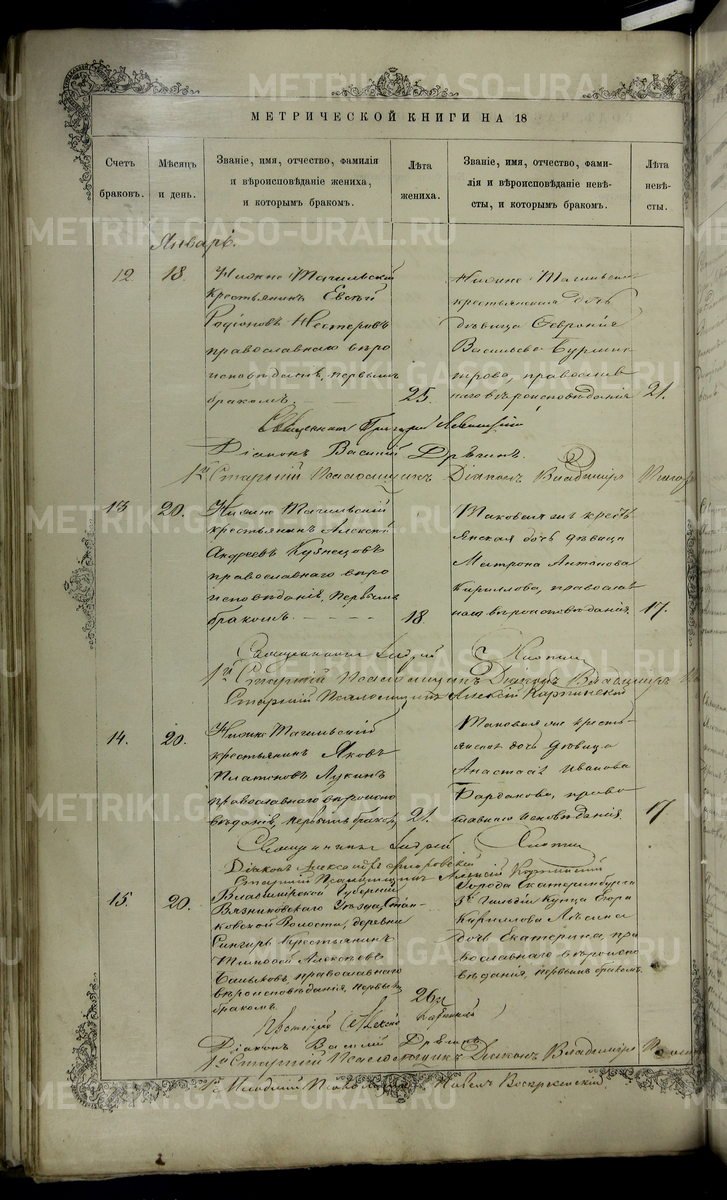 МЕТРИЧЕСКОЙ КНИГИ НА 18
Счетъ браковъ.
Мѣсяцъ и день.
Званіе, имя, отчество, фамилія
и вѣроисповѣданіе жениха,
и которымъ бракомъ.
Лѣта жениха.
Званіе, имя, отчество, фами-
лія и вѣроисповѣданіе невѣ-
сты, и которымъ бракомъ.
Лѣта невѣ-
сты.
Январь.
12
18.
Нижне Тагильскій
крестьянинъ Евсѣй
Родіоновъ Нестеровъ
православнаго вѣро
исповѣданія, первымъ
бракомъ.
25.
Нижне Тагильская
крестьянская дочь
дѣвица Феврония
Васильева
православ
наго вѣроисповѣданія
21.
Священникъ Григорій Левитскій
Діаконъ Василій
1й Старшій Псаломщикъ Діаконъ Владиміръ
13
20.
Нижне Тагильскій
крестьянинъ Алексѣй
Андреевъ Кузнецовъ
православнаго вѣро
исповѣданія, первымъ
бракомъ.
18.
Таковая же кресть
янская дочь дѣвица
Матрона Антонова
Кириллова, православ
наго вѣроисповѣданія
17.
Священникъ Андрей
1й Старшій Псаломщикъ Діаконъ Владиміръ
Старшій Псаломщикъ Алексій Карпинскій
14.
20.
Нижне Тагильскій
крестьянинъ Яковъ
Платоновъ Лукинъ
православнаго вѣроиспо
вѣданія, первымъ браком,
21.
Таковая же кресть-
янская дочь дѣвица
Анастасія Иванова
право
славнаго исповѣданія
17
Священникъ Андрей
Діаконъ Александръ
Старшій Псаломщикъ Алексій Карпинскій
15.
20.
Владимірской Губерніи
Вязниковскаго Уѣзда, Стан-
ковской Волости, деревни
крестьянинъ
Тимофей Алексѣевъ
православнаго
вѣроисповѣданія, первымъ
бракомъ
26
Города Екатеринбурга
Гильдіи Купца Егора
Кириллова
дочь Екатерина, пра
вославнаго вѣроиспо
вѣданія, первымъ бракомъ.
Протоіерей Алексій
Діаконъ Василій
1й Старшій Псаломщикъ Діаконъ Владиміръ
1й Младшій Псаломщикъ Павелъ Воскресенскій
METRIKI.GASO-URAL.RU